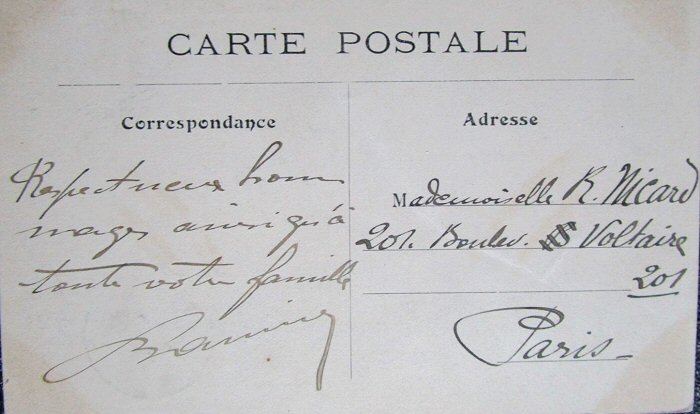 CARTE POSTALE
Correspondance
Respectueux hom
mages ainsi qu'à
toute votre famille
Adresse
Mademoiselle R. Nicard
201. Boulev. Voltaire
201
Paris